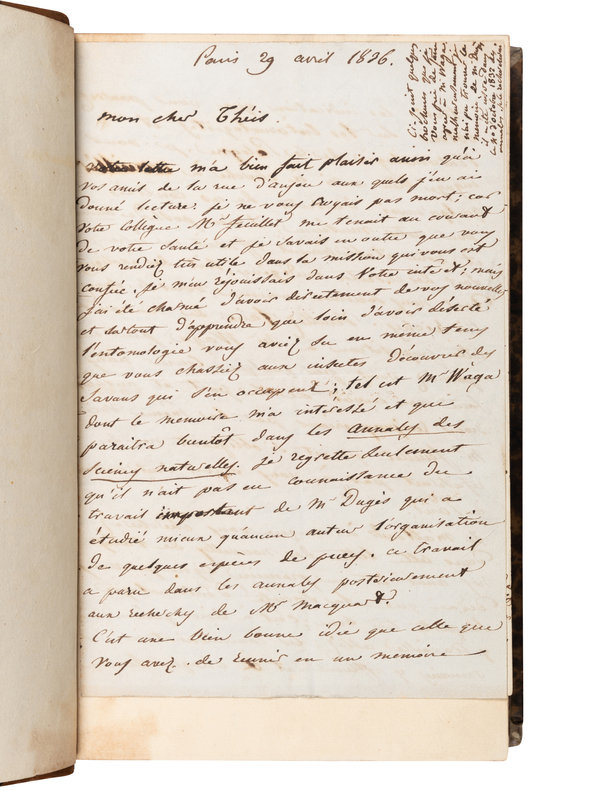 Paris 29 avril 1836.
mon cher Théis.
Votre lettre m'a bien fait plaisir ainsi qu'à
vos amis de la rue d'anjou aux quels j'en ai
donné lecture. je ne vous croyais pas mort; car
votre collègue Mr feuillet me tenait au courant
de votre santé et je savais en outre que vous
vous rendiez très utile dans la mission qui vous est
confiée. je m'en rejouissais dans votre intérêt; mais
j'ai été charmé d'avoir directement de vos nouvelles
et surtout d'apprendre que loin d'avoir déserté
l'entomologie vous aviez su en même tems
que vous chassiez aux insectes découvrir des
savans qui s'en occupent; tel est Mr Wàga
dont le memoire m'a intéressé et qui
paraitra bientôt dans les annales des
sciences naturelles. je regrette seulement
qu'il n'ait pas eu connaissance du
travail important de Mr Dugès qui a
étudié mieux qu'aucun auteur l'organisation
de quelques espèces de puces. ce travail
a paru dans les annales postérieurement
aux recherches de Mr Macquart.
C'est une bien bonne idée que celle que
vous avez de reunir en un memoire
Ci joint quelques
brochures que je
vous prie de faire
agréer à Mr Waga.
malheureusement